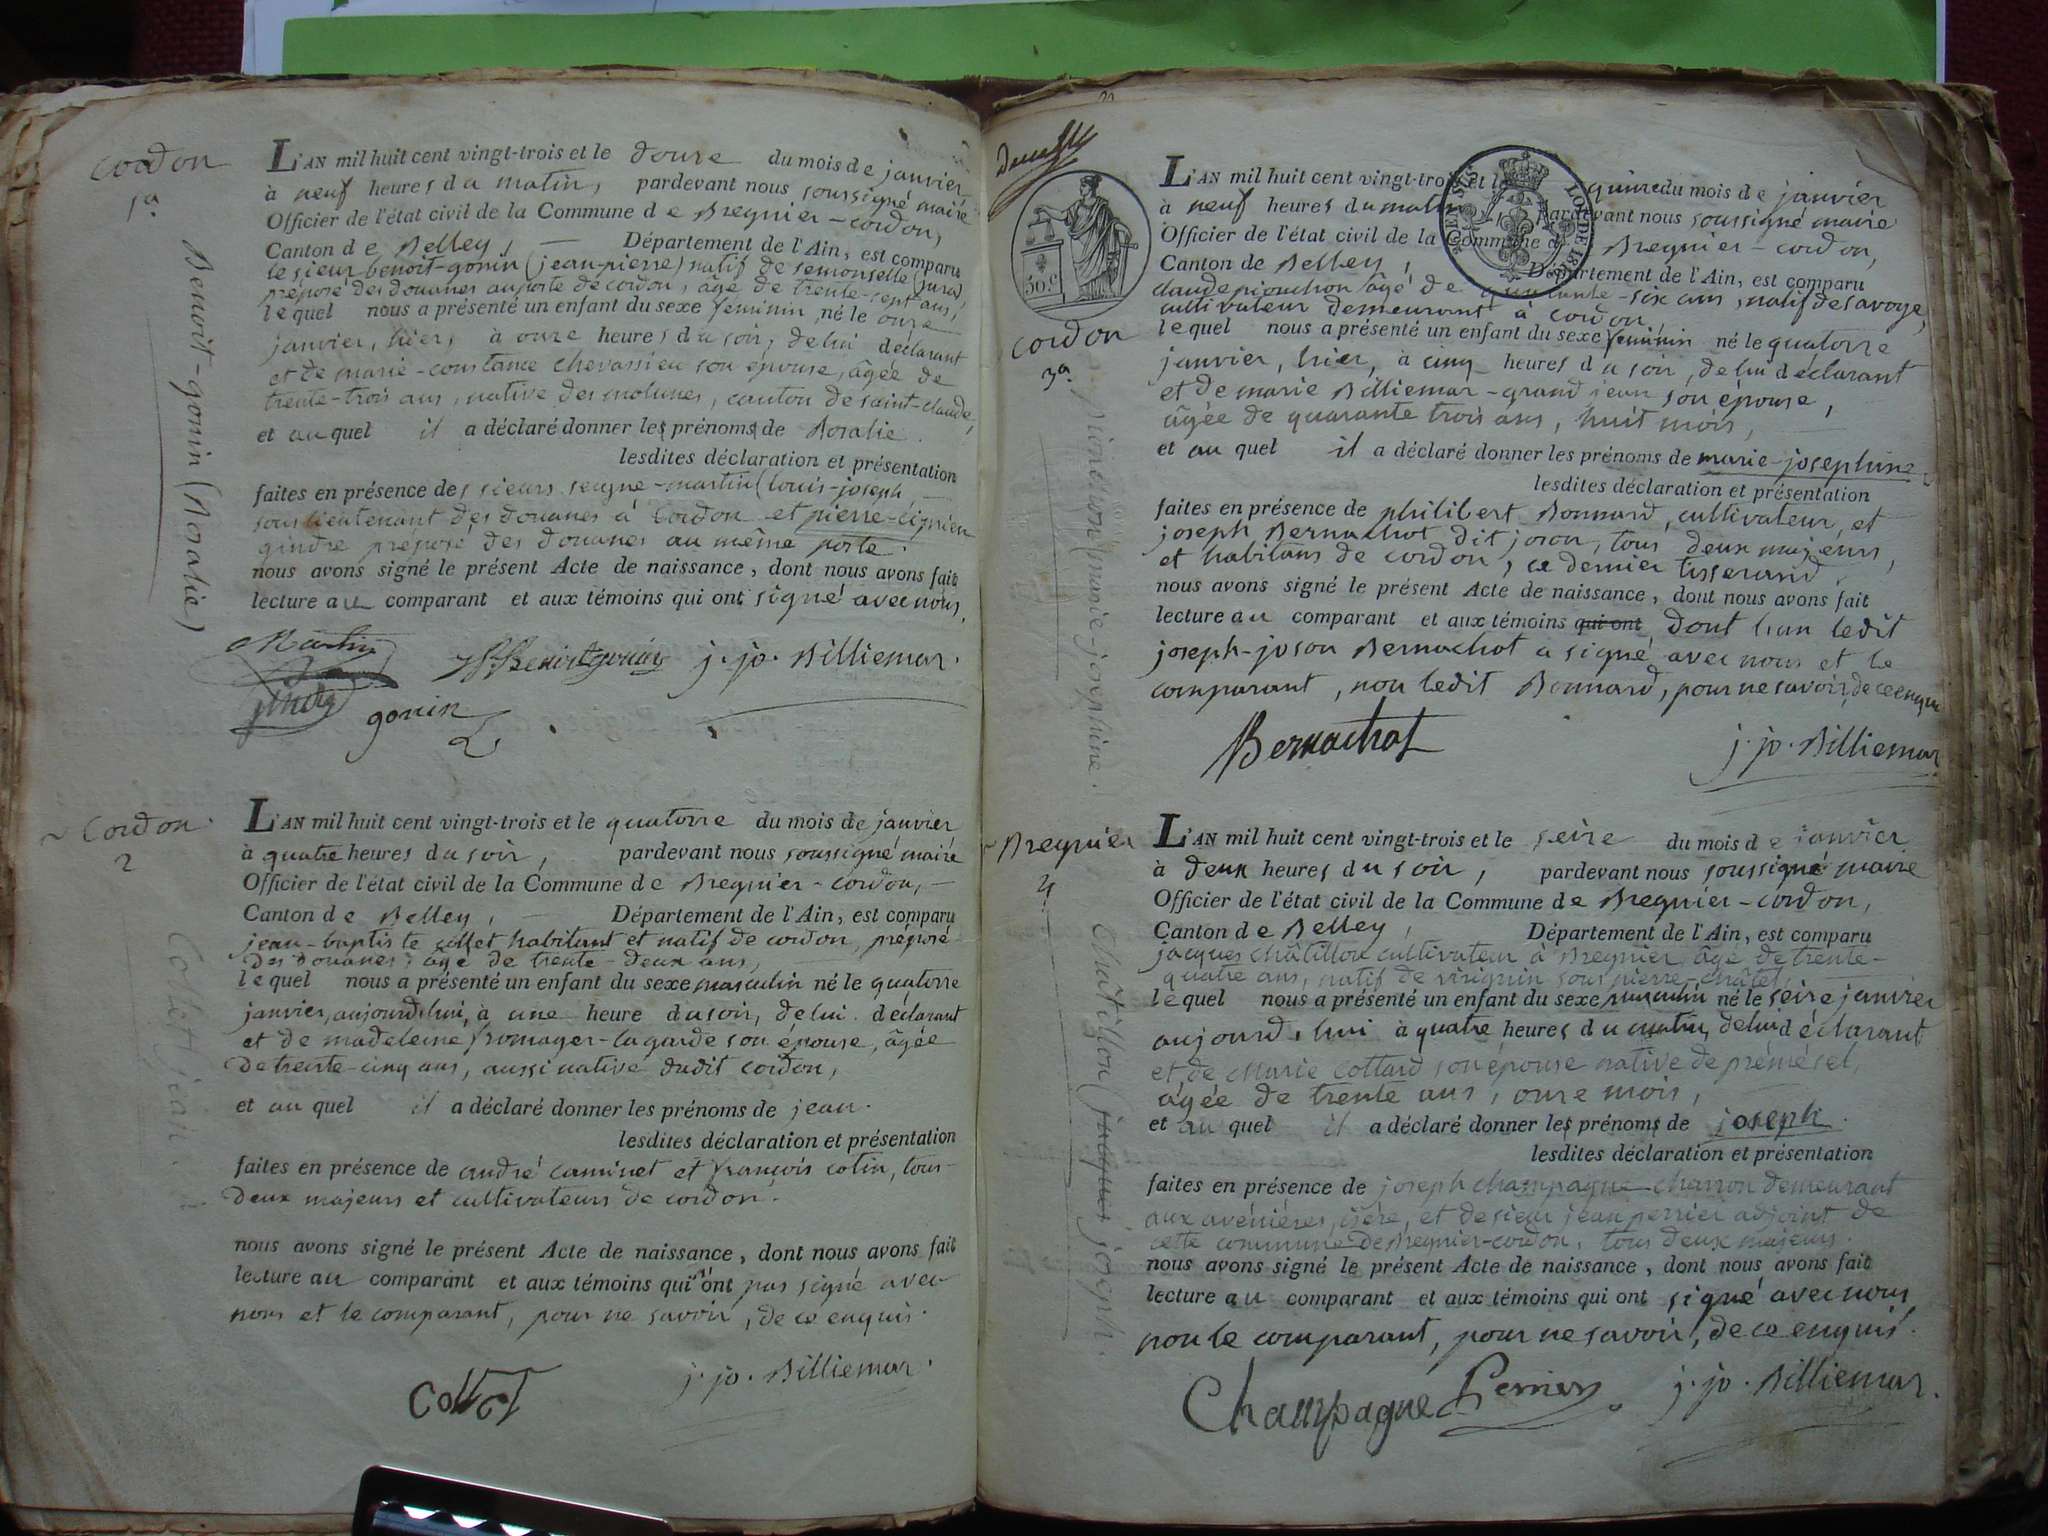 Cordon
1a
Benoit-gonin (Rosalie)
L'AN mil huit cent vingt-trois et le douze du mois de janvier
à neuf heures du matin, pardevant nous soussigné maire
Officier de l'état civil de la Commune de Bregnier-cordon,
Canton de Belley, Département de l'Ain, est comparu
le sieur benoit-gonin (jean-pierre) natif de semonselle (jura)
préposé des douanes au poste de cordon, âgé de trente-sept ans,
lequel nous a présenté un enfant du sexe féminin, né le onze
janvier, hier, à onze heures du soir, de lui déclarant
et de marie-constance chevassieu son épouse, âgée de
trente-trois ans, native des molunes, canton de saint-claude,
et auquel il a déclaré donner les prénoms de Rosalie.
lesdites déclaration et présentation
faites en présence des sieurs seigne-martin (louis-joseph,
sous lieutenant des douanes à Cordon et pierre-ciprien
gindre préposé des douanes au même poste.
nous avons signé le présent Acte de naissance, dont nous avons fait
lecture au comparant et aux témoins qui ont signé avec nous,
Martin
Benoitgonin j. jo. Billiemar.
gindre
gonin
Cordon
2
Collet jean
L'AN mil huit cent vingt-trois et le quatorze du mois de janvier
à quatre heures du soir, pardevant nous soussigné maire
Officier de l'état civil de la Commune de Bregnier-cordon,
Canton de Belley, Département de l'Ain, est comparu
jean-baptiste collet habitant et natif de cordon, préposé
des douanes, âgé de trente-deux ans,
lequel nous a présenté un enfant du sexe masculin né le quatorze
janvier, aujourd'hui, à une heure du soir, de lui déclarant
et de madeleine fromager-lagarde son épouse, âgée
de trente-cinq ans, aussi native dudit cordon,
et auquel il a déclaré donner les prénoms de jean.
lesdites déclaration et présentation
faites en présence de andré caminet et françois cotin, tous
deux majeurs et cultivateurs de cordon.
nous avons signé le présent Acte de naissance, dont nous avons fait
lecture au comparant et aux témoins qui n'ont pas signé avec
nous et le comparant, pour ne savoir, de ce enquis.
Collet
j. jo. Billiemar.
50 c
Cordon
3a
pionchon (marie-josephine.
L'AN mil huit cent vingt-trois et le quinze du mois de janvier
à neuf heures du matin pardevant nous soussigné maire
Officier de l'état civil de la Commune de Bregnier-cordon,
Canton de Belley, Département de l'Ain, est comparu
claude pionchon âgé de quarante-six ans, natif de savoye,
cultivateur demeurant à cordon,
lequel nous a présenté un enfant du sexe féminin né le quatorze
janvier, hier, à cinq heures du soir, de lui déclarant
et de marie Billiemar-grand jean son épouse,
âgée de quarante trois ans, huit mois,
et auquel il a déclaré donner les prénoms de marie-josephine.
lesdites déclaration et présentation
faites en présence de philibert Bonnard, cultivateur, et
joseph Bernachot dit joson, tous deux majeurs,
et habitans de cordon, ce dernier tisserand.
nous avons signé le présent Acte de naissance, dont nous avons fait
lecture au comparant et aux témoins qui ont, dont l'un ledit
joseph-joson Bernachot a signé avec nous et le
comparant, non ledit Bonnard, pour ne savoir, de ce enquis
Bernachot
j. jo. Billiemar
Bregnier
4
Châtillon (joseph.
L'AN mil huit cent vingt-trois et le seize du mois de janvier
à deux heures du soir, pardevant nous soussigné maire
Officier de l'état civil de la Commune de Bregnier-cordon,
Canton de Belley, Département de l'Ain, est comparu
jacques châtillon cultivateur à Bregnier, âgé de trente-
quatre ans, natif de virignin sous pierre-châtel,
lequel nous a présenté un enfant du sexe masculin né le seize janvier
aujourd'hui à quatre heures du matin, de lui déclarant
et de Marie Cottard son épouse native de prémésel,
âgée de trente ans, onze mois,
et auquel il a déclaré donner les prénoms de joseph.
lesdites déclaration et présentation
faites en présence de joseph champagne charron demeurant
aux avenières, isère, et de sieur jean perrier adjoint de
cette commune de Bregnier-cordon, tous deux majeurs.
nous avons signé le présent Acte de naissance, dont nous avons fait
lecture au comparant et aux témoins qui ont signé avec nous
non le comparant, pour ne savoir, de ce enquis.
Champagne Perrier j. jo. Billiemar.